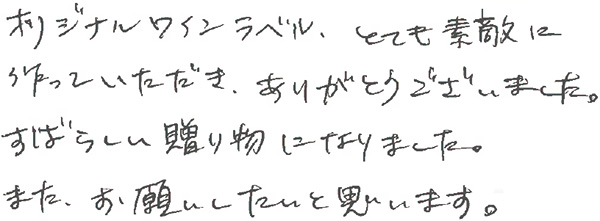 オリジナルワインラベル、とても素敵に
作っていただき、ありがとうございました。
すばらしい贈り物になりました。
また、お願いしたいと思います。